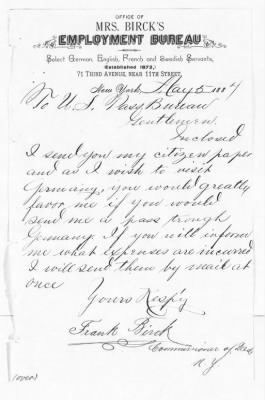 OFFICE OF
MRS. BIRCK'S
EMPLOYMENT BUREAU
Select German, English, French and Swedish Servants,
(Established 1873,)
71 THIRD AVENUE, NEAR 11TH STREET.
New York, May 5 1884
To U. S. Pass Bureau
Gentlemen.
Inclosed
I send you my citizen paper
and as I wish to visit
Germany, you would greatly
favor me if you would
send me a pass trough
Germany. If you will inform
me what expenses are incurred
I will send them by mail at
once
Yours Resp'y
Frank Birck
Commissioner of Deeds
N.Y.
(over)